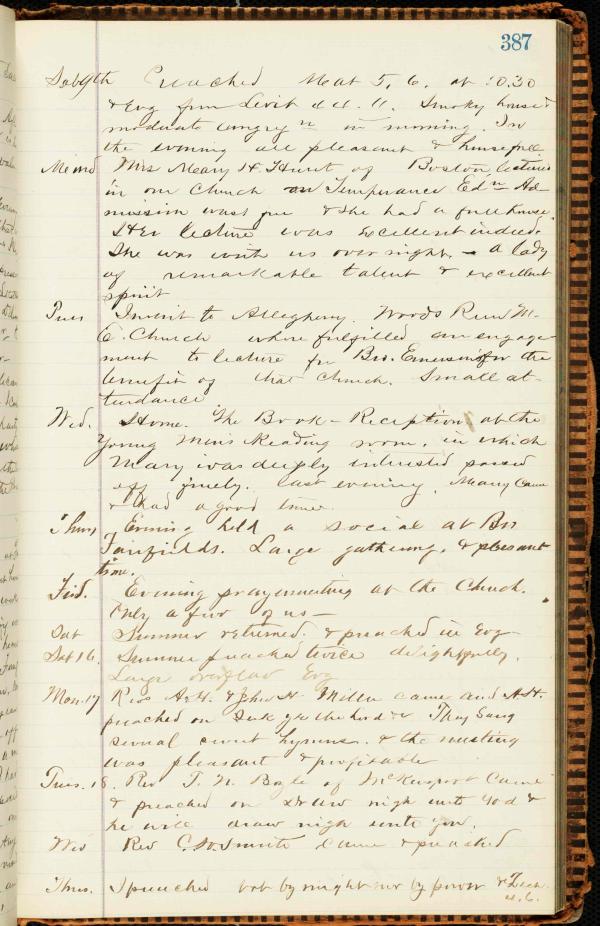 387
Sab 9th Preached Mat 5, 6. at 10.30
& Evg from Levit Smoky house &
moderate congrn in morning. In
the evening all pleasant & house full
Mrs Mary H. Hunt of Boston, lectured
in our Church on Temperance Edn Ad-
mission was free & she had a full house.
& Her lecture was excellent indeed.
She was with us over night. - a lady
of remarkable talent & excellent
spirit
Tues I went to Allegheny. Woods Run M.
E. Church where fulfilled an engage-
ment to lecture for Bro. Emerson for the
benefit of that Church. Small at-
tendance
Wed. Home. The Book-Reception at the
Young Mens Reading room, in which
Mary was deeply interested passed
off finely. last evening. Many came
& had a good time.
Thurs Evening held a social at Bro
Fairfields. Large gathering. & pleasant
time.
Frid. Evening prayermeeting at the Church.
Only a few of us -
Sat Sumner returned. & preached in Evg
Sab 16. Sumner preached twice delightfully.
Large overflow Evg
Mon. 17 Revs A.H. & John H. Miller came and A.H.
preached on Seek ye the Lord &c They Sang
several sweet hymns. & the meeting
was pleasant & profitable
Tues. 18. Rev T. N. Boyle of McKeesport Came
& preached on Draw nigh unto God &
he will draw nigh unto you.
Wed Rev C. W. Smith Came & preached
Thurs. I preached not by might nor by power & Zech.
4, 6.